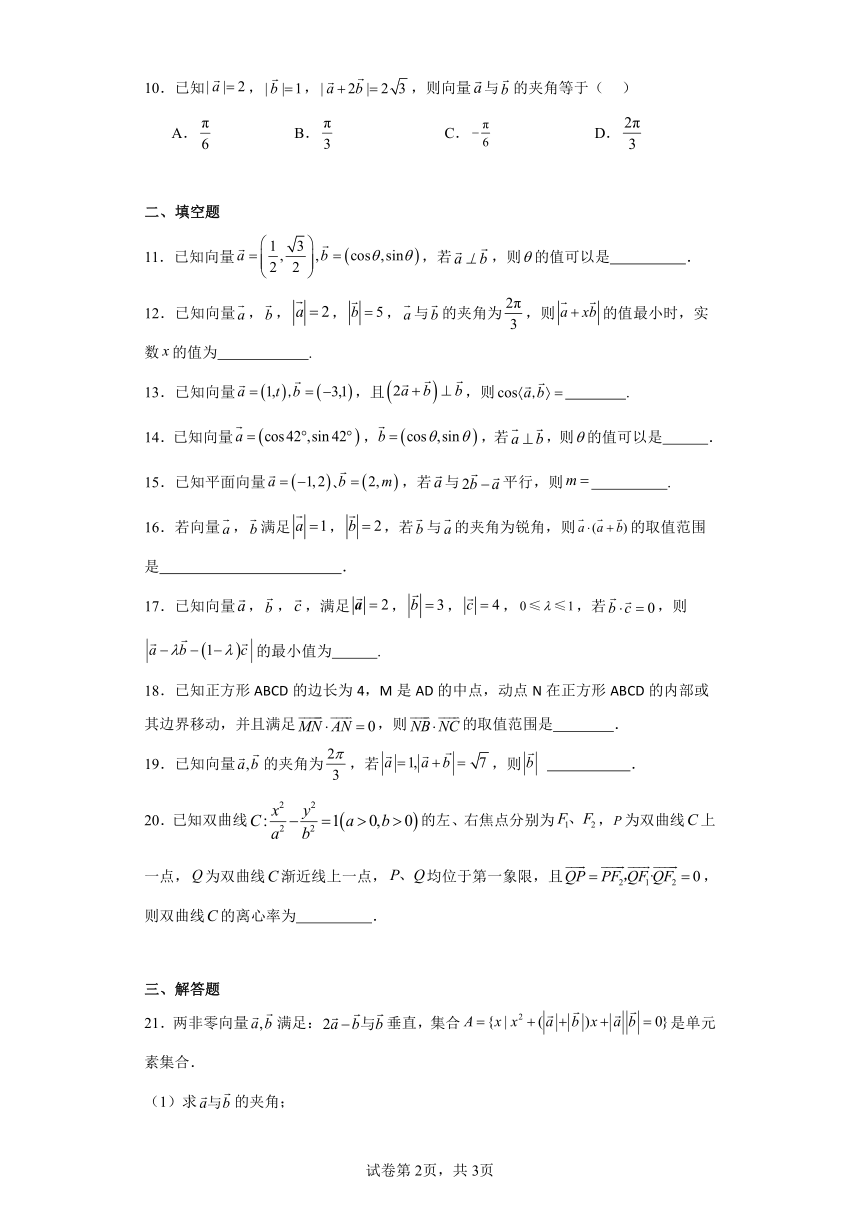 10．已知|a⃗|=2，|b⃗|=1，|a⃗+2b⃗|=2√3，则向量a⃗与b⃗的夹角等于（ ）
A．π/6 B．π/3 C．−π/6 D．2π/3
二、填空题
11．已知向量a⃗=(1/2,√3/2),b⃗=(cosθ,sinθ)，若a⃗⊥b⃗，则θ的值可以是 ．
12．已知向量a⃗，b⃗，|a⃗|=2，|b⃗|=5，a⃗与b⃗的夹角为2π/3，则|a⃗+xb⃗|的值最小时，实
数x的值为 ．
13．已知向量a⃗=(1,t),b⃗=(−3,1)，且(2a⃗+b⃗)⊥b⃗，则cos⟨a⃗,b⃗⟩= ．
14．已知向量a⃗=(cos42°,sin42°)，b⃗=(cosθ,sinθ)，若a⃗⊥b⃗，则θ的值可以是 ．
15．已知平面向量a⃗=(−1,2)、b⃗=(2,m)，若a⃗与2b⃗−a⃗平行，则m= ．
16．若向量a⃗，b⃗满足|a⃗|=1，|b⃗|=2，若b⃗与a⃗的夹角为锐角，则a⃗·(a⃗+b⃗)的取值范围
是 ．
17．已知向量a⃗，b⃗，c⃗，满足|a⃗|=2，|b⃗|=3，|c⃗|=4，0≤λ≤1，若b⃗·c⃗=0，则
|a⃗−λb⃗−(1−λ)c⃗|的最小值为 ．
18．已知正方形ABCD的边长为4，M是AD的中点，动点N在正方形ABCD的内部或
其边界移动，并且满足MN⃗·AN⃗=0，则NB⃗·NC⃗的取值范围是 ．
19．已知向量a⃗,b⃗的夹角为2π/3，若|a⃗|=1,|a⃗+b⃗|=√7，则|b⃗| ．
20．已知双曲线C:x²/a²−y²/b²=1(a>0,b>0)的左、右焦点分别为F₁、F₂，P为双曲线C上
一点，Q为双曲线C渐近线上一点，P、Q均位于第一象限，且QP⃗=PF₂⃗,QF₁⃗·QF₂⃗=0，
则双曲线C的离心率为 ．
三、解答题
21．两非零向量a⃗,b⃗满足：2a⃗−b⃗与b⃗垂直，集合A={x|x²+(|a⃗|+|b⃗|)x+|a⃗||b⃗|=0}是单元
素集合．
（1）求a⃗与b⃗的夹角；
试卷第2页，共3页